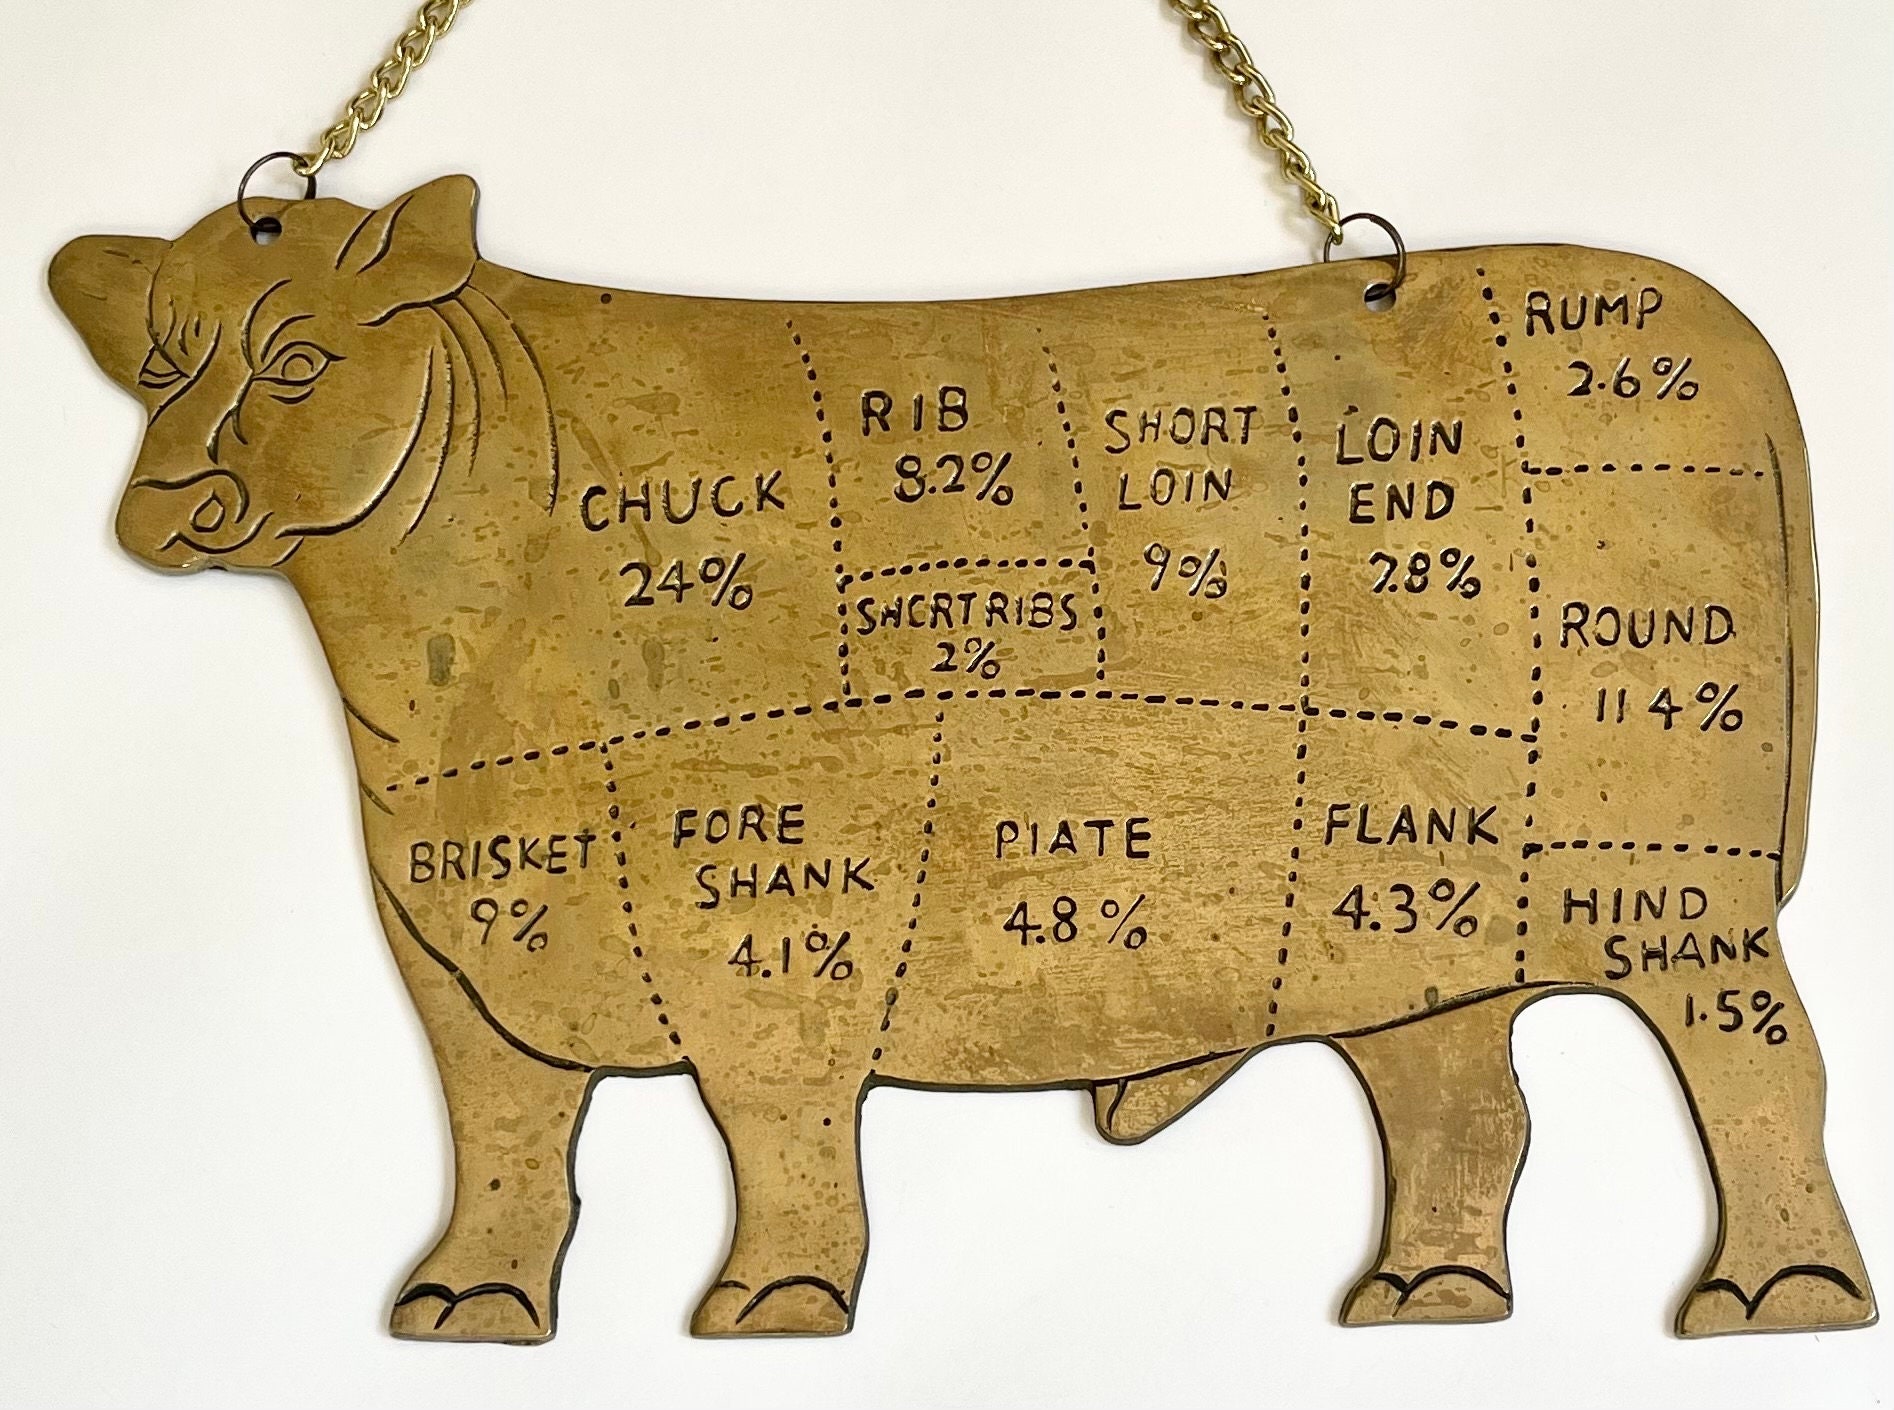 RUMP
2.6%
RIB
8.2%
SHORT
LOIN
9%
LOIN
END
7.8%
CHUCK
24%
SHCRTRIBS
2%
ROUND
11 4%
BRISKET
9%
FORE
SHANK
4.1%
PIATE
4.8%
FLANK
4.3%
HIND
SHANK
1.5%